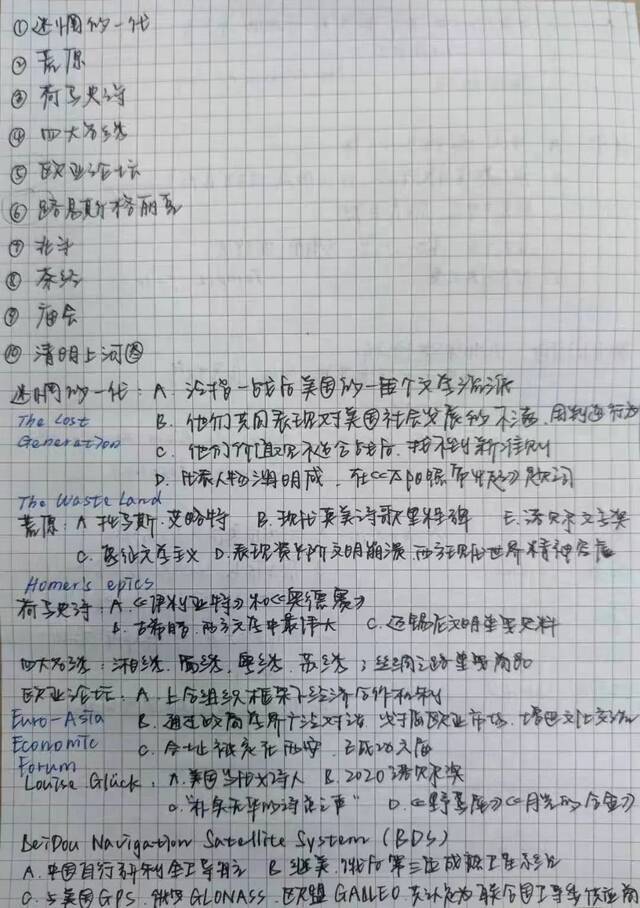 ① 迷惘的一代
② 荒原
③ 荷马史诗
④ 四大名绣
⑤ 欧亚论坛
⑥ 路易斯·格丽克
⑦ 北斗
⑧ 茶经
⑨ 庙会
⑩ 清明上河图
迷惘的一代：A. 泛指一战后美国的一个文学流派
The Lost B. 他们共同表现对美国社会发展的不满
Generation C. 他们价值观不适合战后，找不到新准则
D. 代表人物海明威，在《太阳照常升起》题词
The Waste Land
荒原：A. 托马斯·艾略特 B. 现代英美诗歌里程碑 E. 诺贝尔文学奖
C. 象征主义 D. 表现资本阶文明崩溃，西方现代世界精神
Homer's epics
荷马史诗：A.《伊利亚特》和《奥德赛》
B. 古希腊，西方文学中最伟大 C. 迈锡尼文明重要史料
四大名绣：湘绣，蜀绣，粤绣，苏绣；丝绸之路重要商品
欧亚论坛：A. 上合组织框架下经济合作机制
Euro-Asia B. 通过欧亚各界广泛对话，欧亚市场，增进文化交流
Economic C. 会址被定在西安，已成
Forum
Louise Glück. A. 美国当代女诗人 B. 2020诺贝尔奖
C. "朴实无华的诗意之声" D.《野鸢尾》《月光的合金》
BeiDou Navigation Satellite System (BDS)
A. 中国自行研制全卫导航 B. 继美、俄后第三位成熟卫星系统
C. 与美国GPS、俄罗GLONASS、欧盟GALILEO，共认定为联合国卫导系供应商